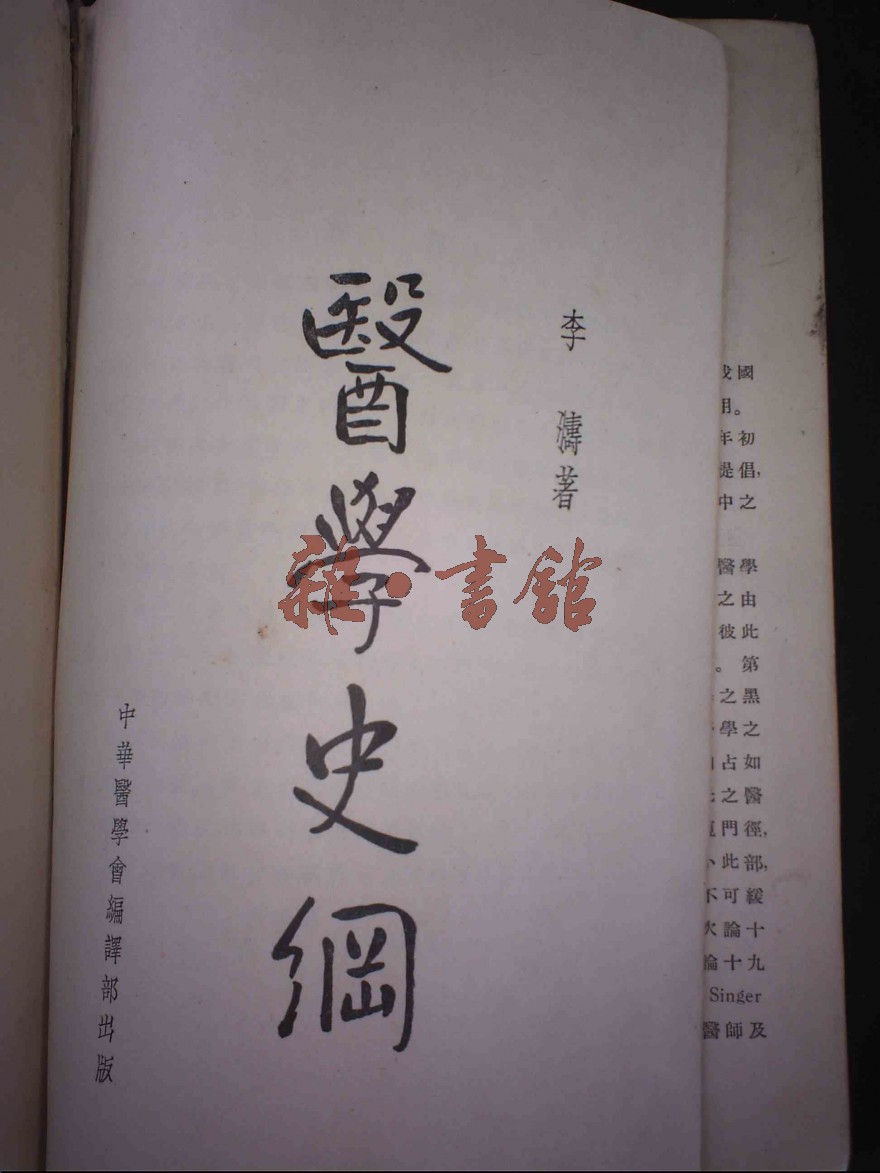 李濤著
醫學史綱
中華醫學會編譯部出版
雜·書館
國
用。
年初
提倡,
中之
醫學
之由
彼此
。第
之黑
學之
占如
之醫
門徑,
此部,
不可緩
論十
論十九
Singer
醫師及